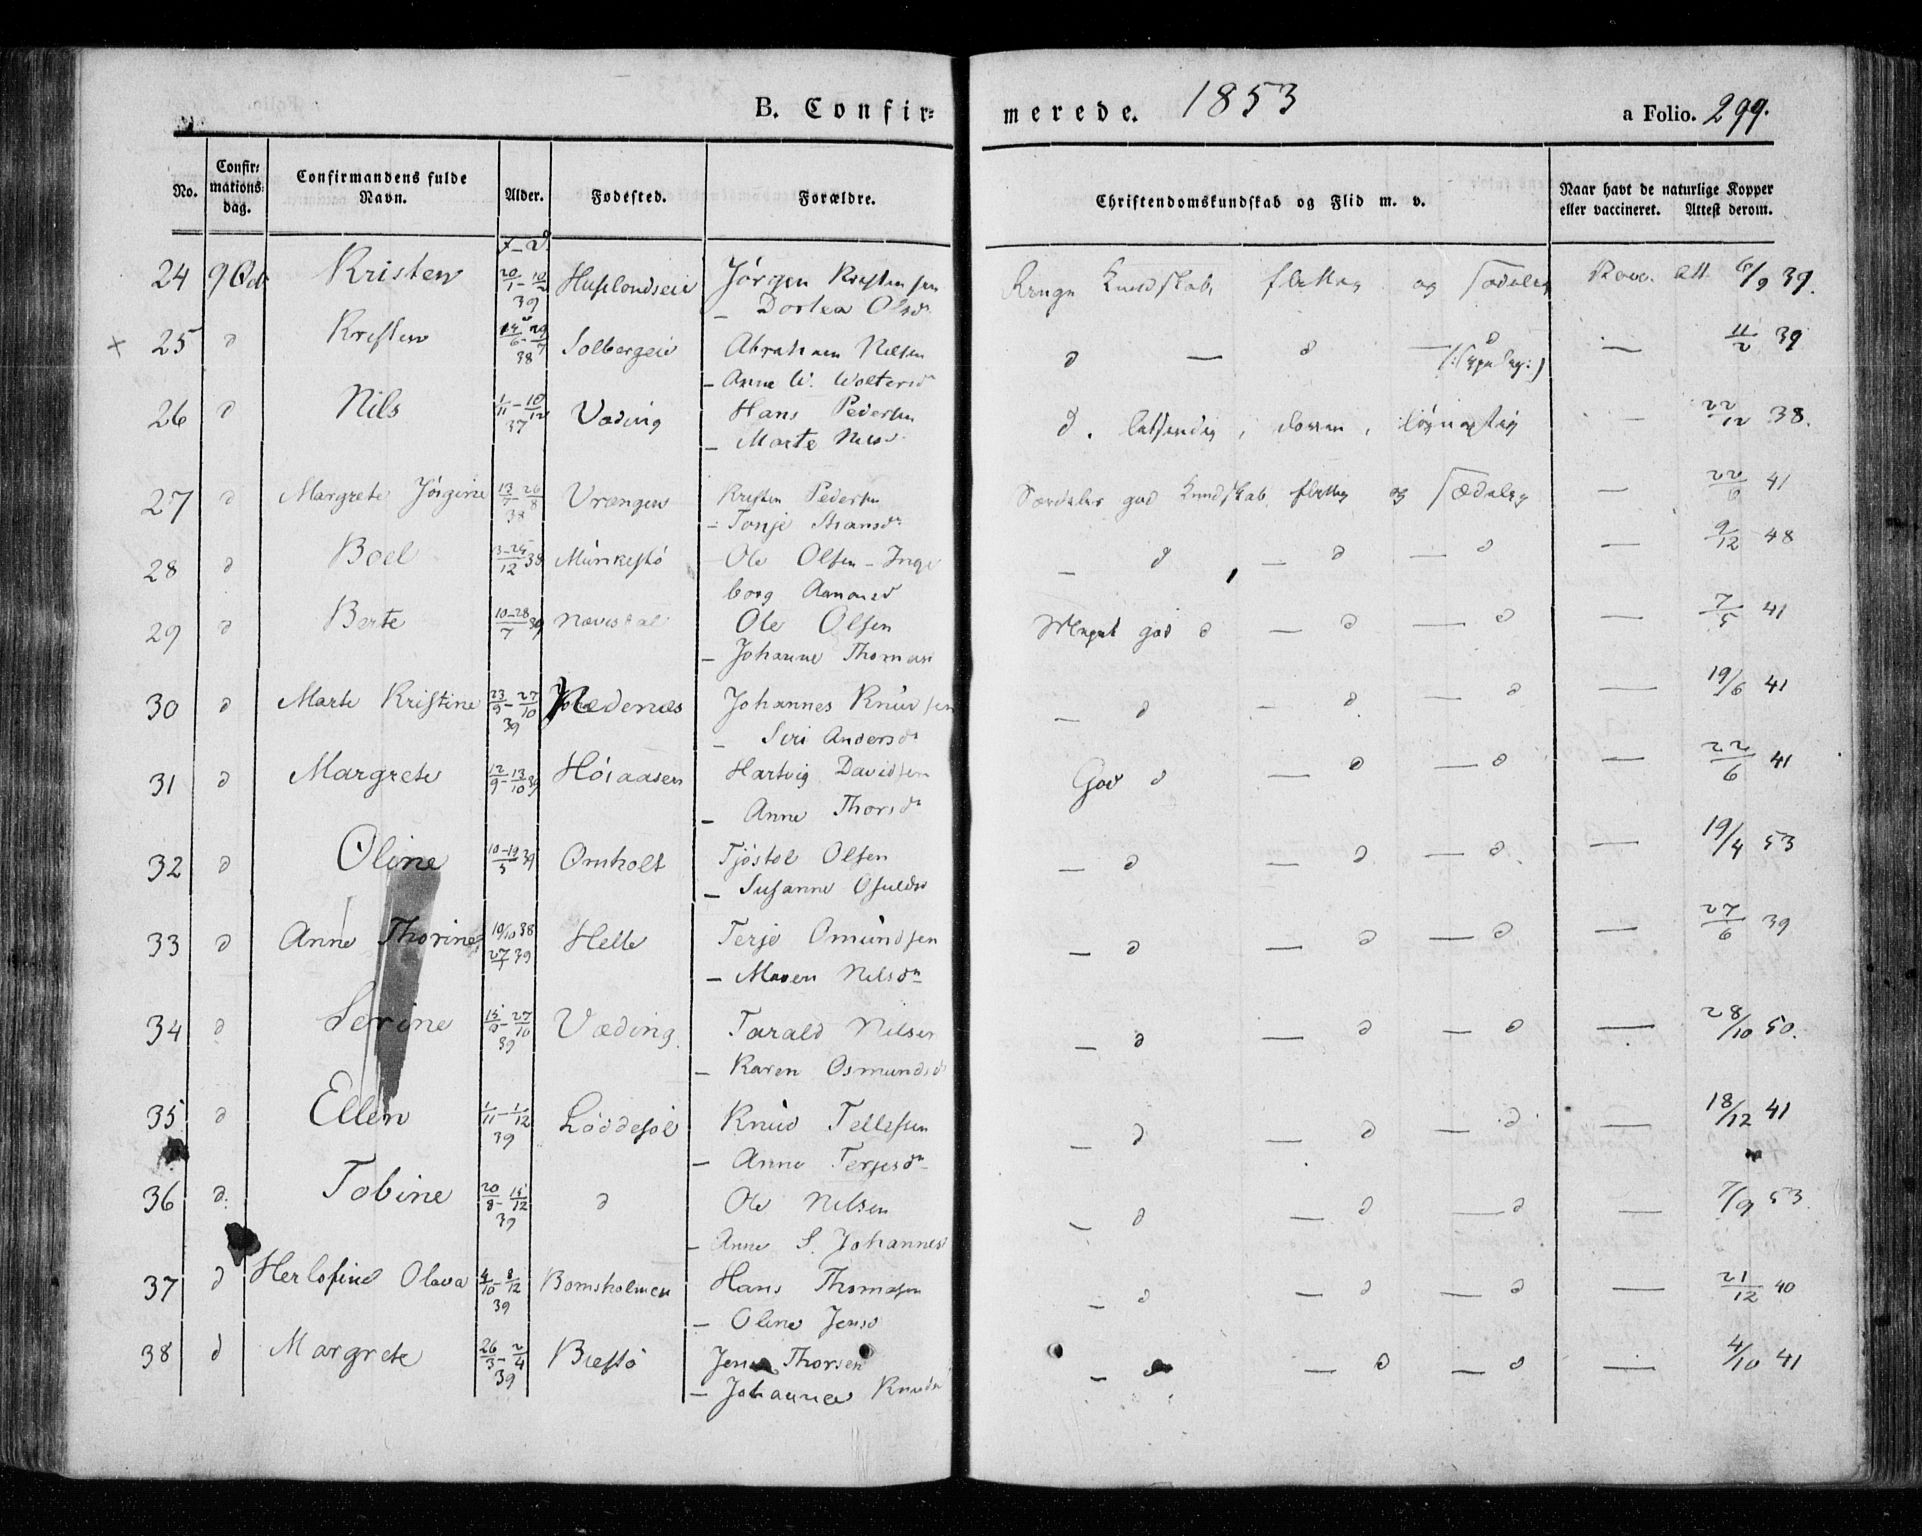 B. Confir=
merede. 1853
a Folio. 299.
No.
Confir=
mations=
dag.
Confirmandens fulde
Navn.
Alder.
Fødested.
Forældre.
Christendomskundskab og Flid m. v.
Naar havt de naturlige Kopper
eller vaccineret. Attest derom.
f – d
24 9 Oct Kristen 20/1 – 10/2 39 Jørgen Kristensen
– Dortea Olsd. Kundskab, flittig og sædelig Att. 6/9 39.
× 25 d Kristen 38 Solbergeie Abraham Nilsen
– Anne W. Woltersd d — d — d — 11/2 39
26 d Nils 1/11 – 10/12 37 Væding Hans Pedersen
– Marte Nilsd. d. letsindig, doven, løgnagtig — 22/12 38.
27 d Margrete Jørgine 13/7 – 26/8 38 Vrængen Kristen Pedersen
– Tonje Særdeles god Kundskab, flittig og sædelig — 22/6 41
28 d Boel 12 38 Ole Olsen – Inge
borg – d – d – d — 9/12 48
29 d Berte 10–28/7 39 Ole Olsen
– Johanne Thomasd Meget god d — d — d — 7/5 41
30 d Marte Kristine 23/9 – 27/10 39 Nædenæs Johannes Knudsen
– Siri Andersd – d – d — d — 19/6 41
31 d Margrete 12/9 – 13/10 39 Høiaasen Hartvig Davidsen
– Anne Thorsd God d — d — d — 22/6 41
32 d Oline 10–19/5 39 Omholt Tjøstol Olsen
– Susanne Osulds – d — d — d — 19/4 53
33 d Anne Thorine 19/10 38 27/1 39 Helle Terje Omundsen
– Maren Nilsd – d — d — d — 27/6 39
34 d Serine 15/9 – 27/10 39 Væding. Tarald Nilsen
– Karen Osmundsd – d — d — d — 28/10 50.
35 d Ellen 1/11 – 1/12 39 Løddesøl Knud Tellefsen
– Anne Terjesd – d — d — d — 18/12 41
36 d. Tobine 20/8 – 15/12 39 d Ole Nilsen
– Anne S. Johannesd – d — d — d — 7/9 53
37 d Herlofine Olava 4/10 – 8/12 39 Bomsholmen Hans Thomasen
– Oline Jensd – d — d — d — 21/12 40
38 d Margrete 26/3 – 2/4 39 Biestø Jens Thorsen
– Johanne Knudsd – d — d — d — 4/10 41